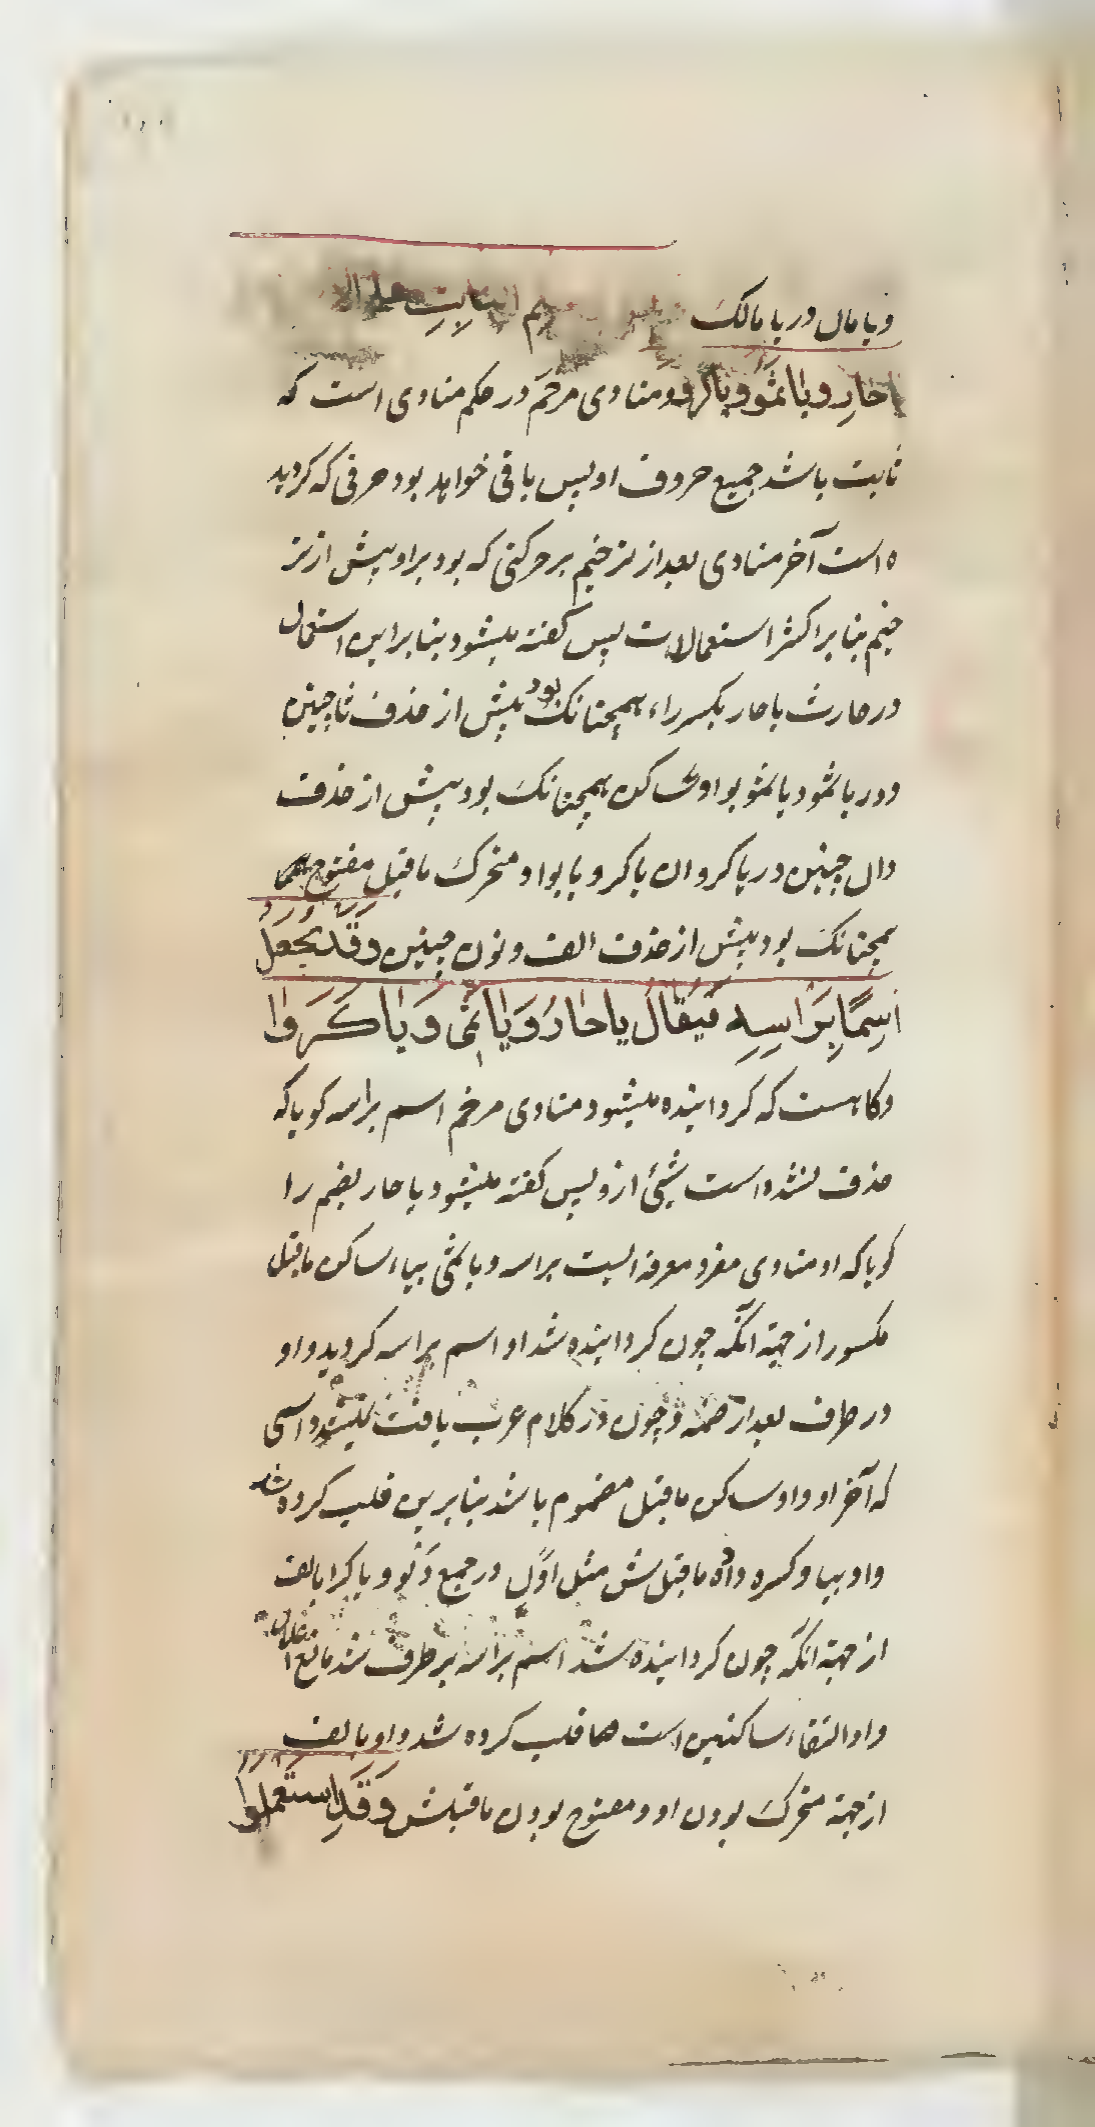 ویا مال در یا مالک
یا حارِ ویا ثمو ویا کرو ومنادی مرخّم در حکم منادی است که
ثابت باشد جمیع حروف او پس باقی خواهد بود حرفی که کردید
ه است آخر منادی بعد از ترخیم بر حرکتی که بود بر او پیش از تر
خیم بنا بر اکثر استعمالات پس کفته میشود بنا براین استعمال
در حارث یا حار بکسر راء همچنانکه بود پیش از حذف ثا چنین
و در یا ثمود یا ثمو بواو ساکن همچنانکه بود پیش از حذف
دال چنین در یا کروان یا کرو یا بواو متحرک ماقبل مفتوح
همچنانکه بود پیش از حذف الف و نون چنین وَقَدْ یُجْعَلُ
اِسْمًا بِرَاسِهِ فَیُقالُ یا حارُ وَیا ثَمی وَیا کَرَوا
وکاهست که کردانیده میشود منادی مرخم اسم براسه کویا که
حذف نشده است شیئ از و پس کفته میشود یا حار بضم را
کویا که او منادی مفرد معرفه ایست براسه و یا ثمی بیاء ساکن ماقبل
مکسور از جهة آنکه چون کردانیده شد او اسم براسه کردید واو
در طرف بعد از ضمه و چون در کلام عرب یافت نمیشود اسمی
که آخر او واو ساکن ماقبل مضموم باشد بنابرین قلب کرده شد
واو بیا و کسره داده ماقبلش مثل اَدْلٍ در جمع دَلْو و یا کرا بالف
از جهة آنکه چون کردانیده شد اسم براسه بر طرف شد مانع اعلال
واو التقاء ساکنین است قلب کرده شد واو بالف
از جهة متحرک بودن او و مفتوح بودن ماقبلش وَقَدِ اسْتَعْمَلُوا